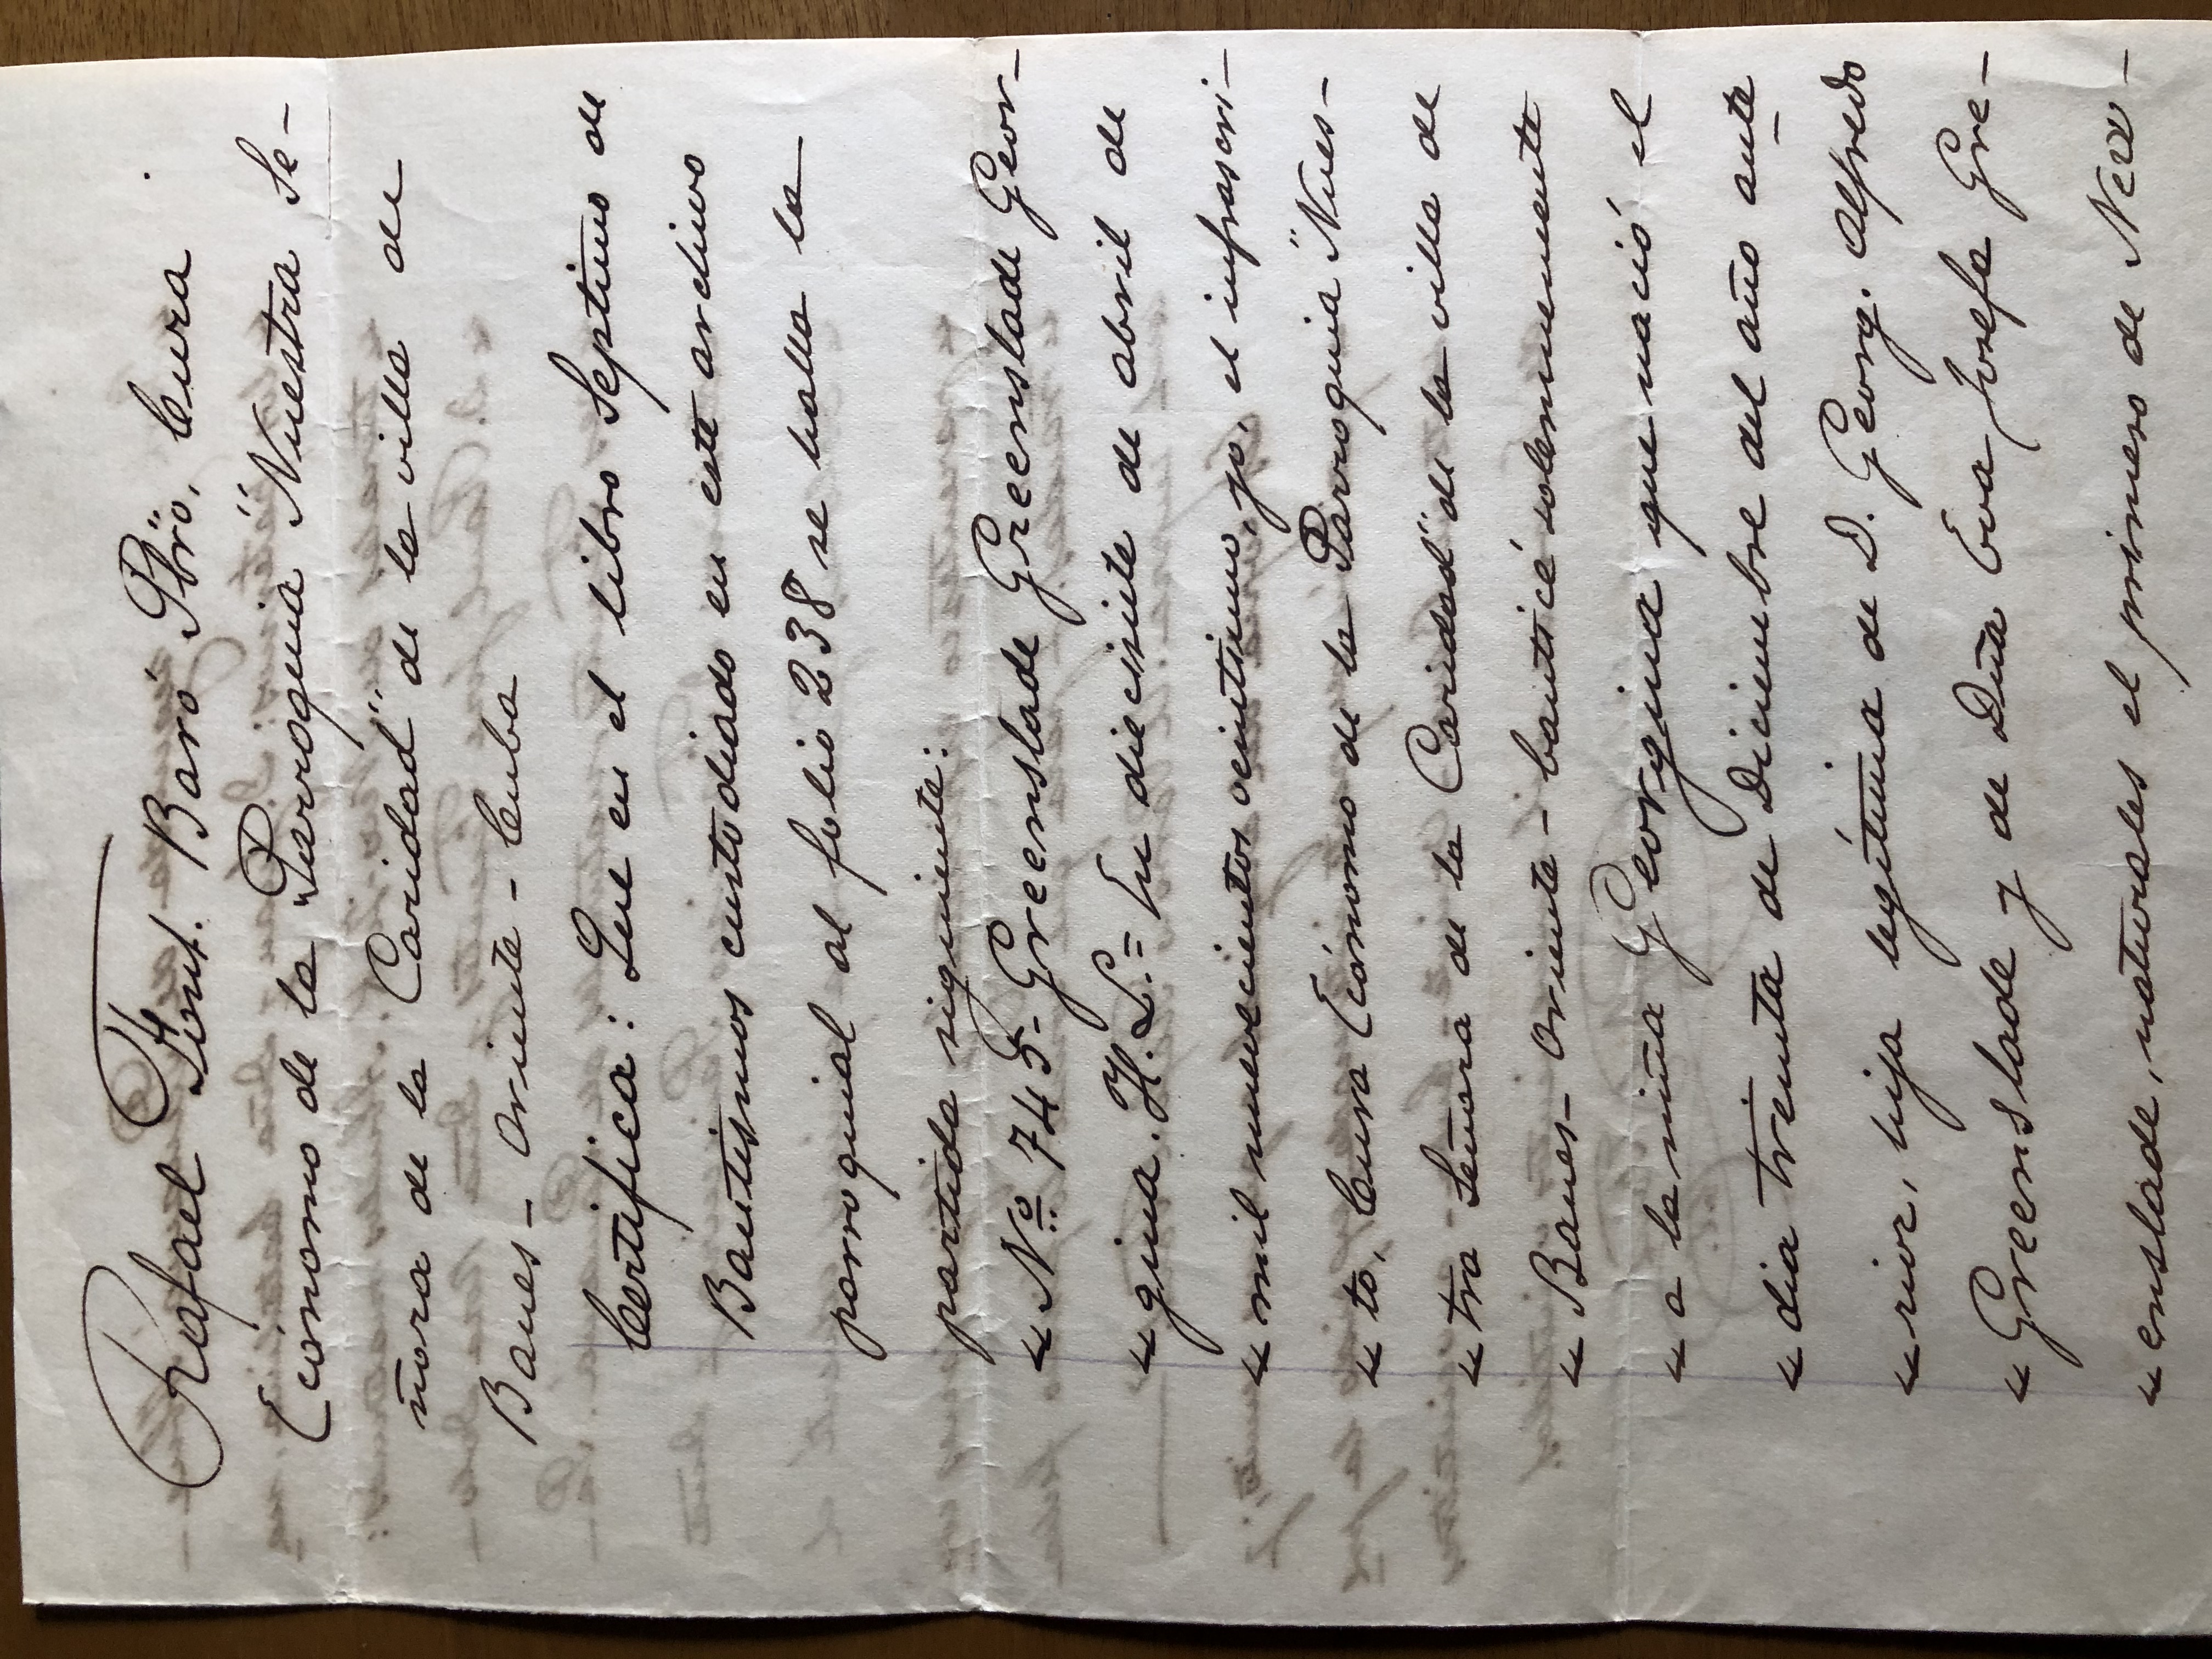 Rafael Font. Baró Pbro, Cura
Ecónomo de la Parroquia "Nuestra Se-
ñora de la Caridad" de la villa de
Banes - Oriente - Cuba
Certifica: Que en el libro Septimo de
Bautismos custodiado en este archivo
parroquial al folio 238 se halla la
partida siguiente:
« Nº 745 - Greenslade Greenslade Geor-
« gina. H. L. = En diecisiete de abril de
« mil nuevecientos veintiuno, yo, el infrascri-
« to, Cura Ecónomo de la Parroquia "Nues-
« tra Señora de la Caridad" de la villa de
« Banes - Oriente - bauticé solemnemente
« a la niña Georgina que nació el
« dia treinta de Diciembre del año ante
« rior, hija legítima de D. Georg. Alfredo
« Greenslade y de Dña Eva Josefa Gre-
« enslade, naturales el primero de New-